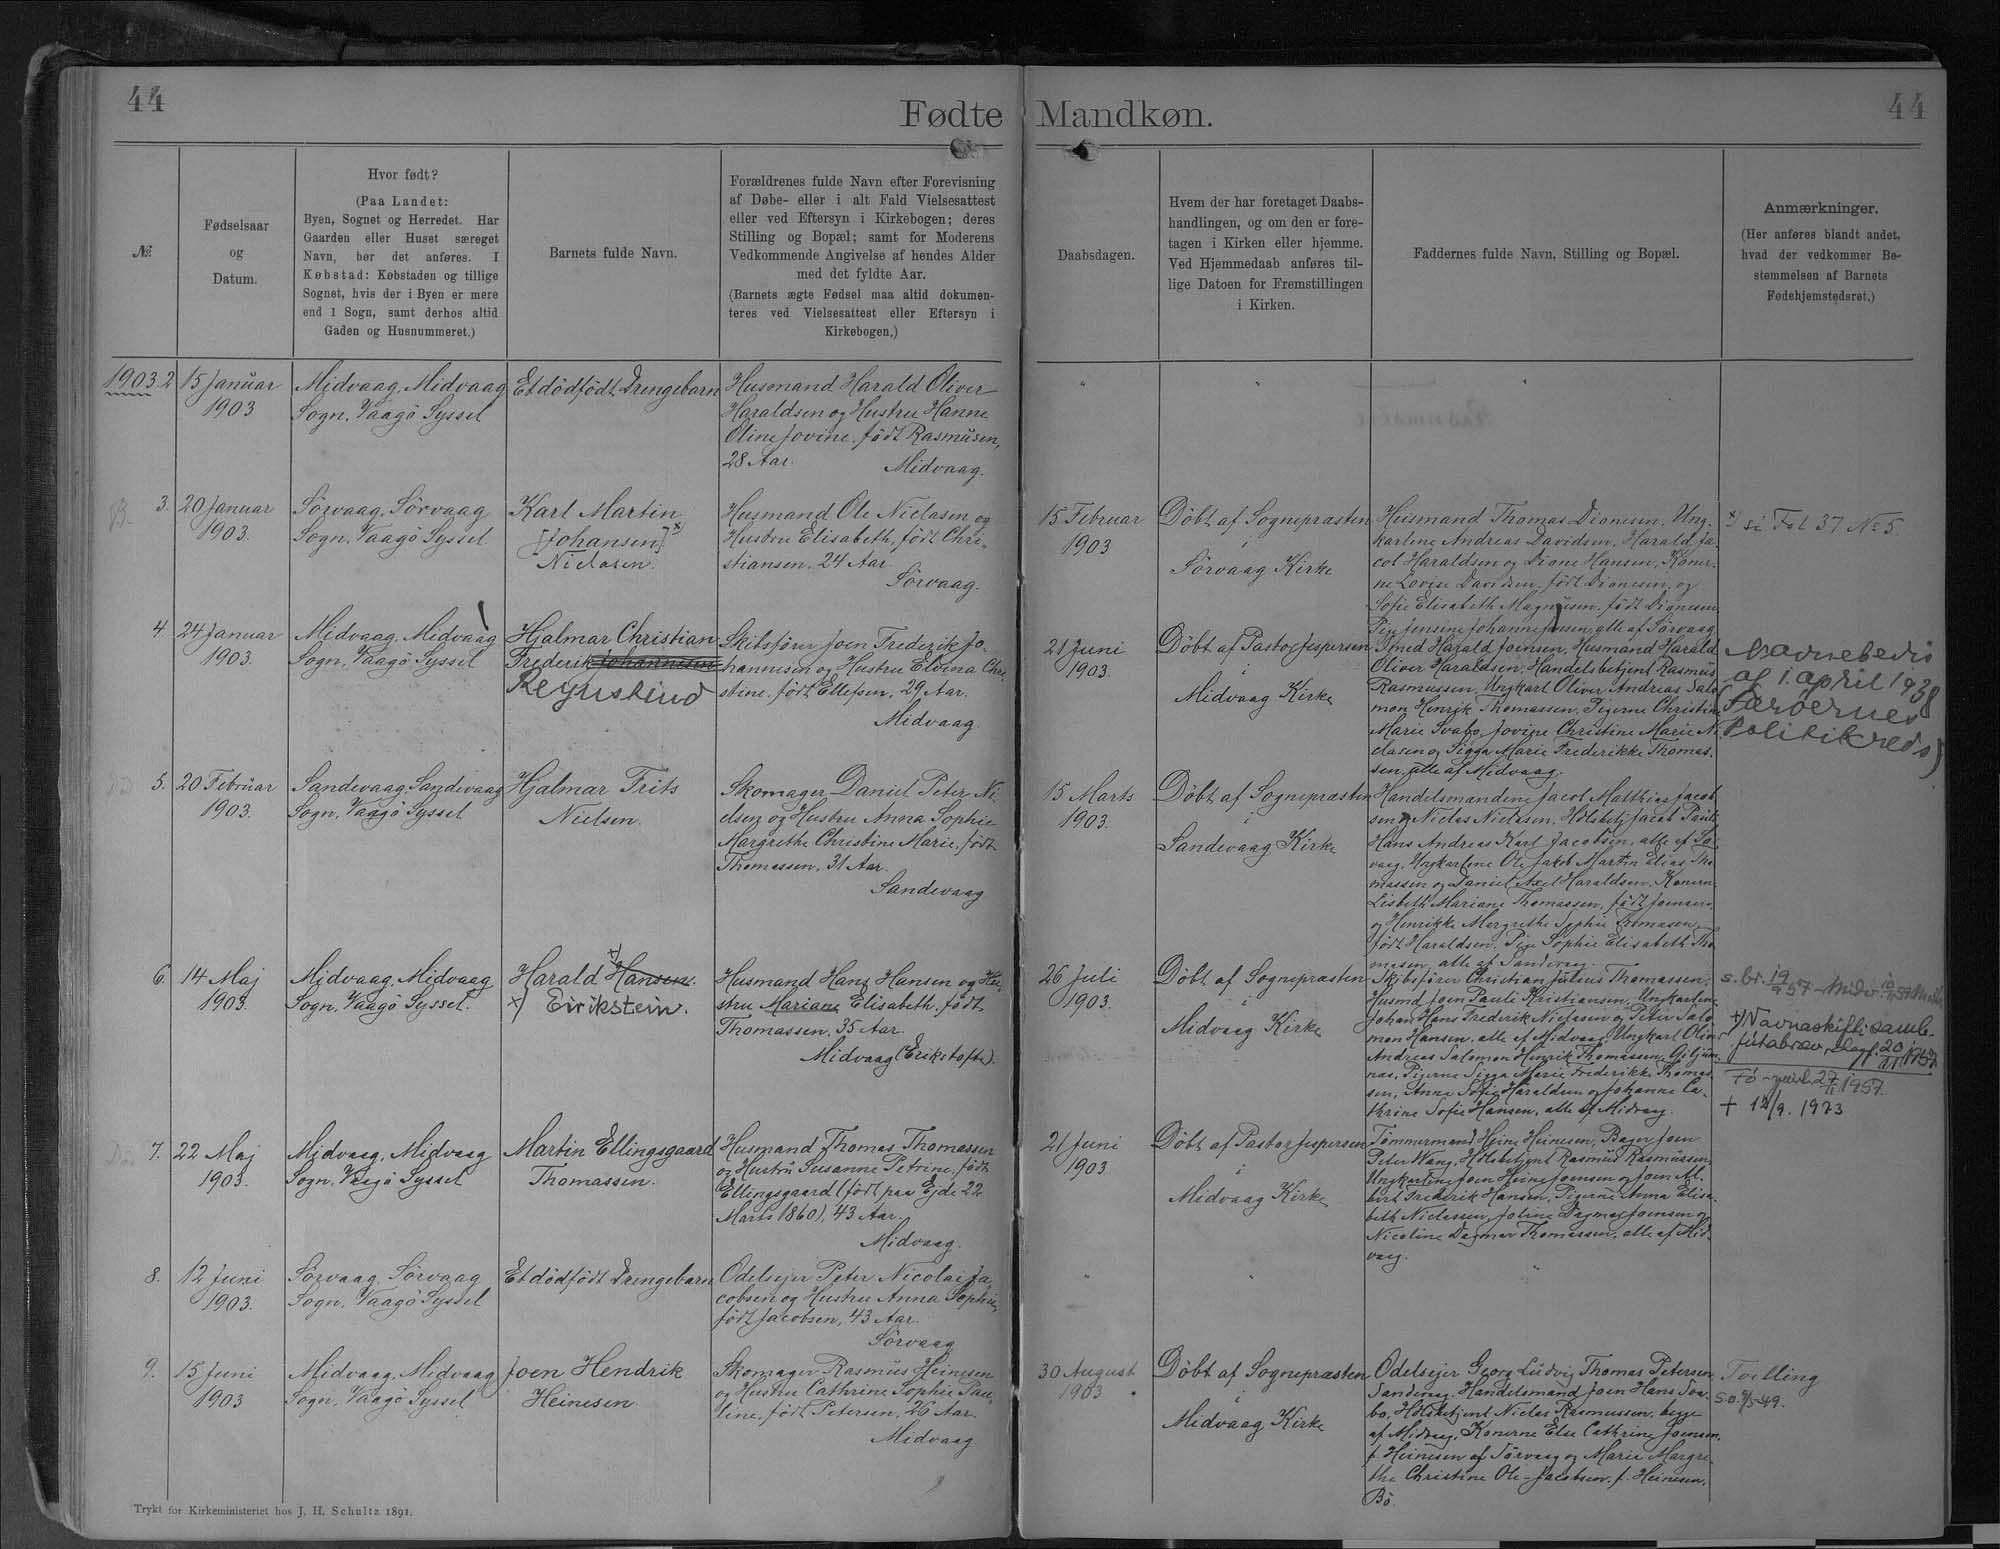 44
Fødte Mandkøn.
44
№.
Fødselsaar
og
Datum.
Hvor født?
(Paa Landet:
Byen, Sognet og Herredet. Har
Gaarden eller Huset særeget
Navn, bør det anføres. I
Købstad: Købstaden og tillige
Sognet, hvis der i Byen er mere
end 1 Sogn, samt derhos altid
Gaden og Husnummeret.)
Barnets fulde Navn.
Forældrenes fulde Navn efter Forevisning
af Døbe- eller i alt Fald Vielsesattest
eller ved Eftersyn i Kirkebogen; deres
Stilling og Bopæl; samt for Moderens
Vedkommende Angivelse af hendes Alder
med det fyldte Aar.
(Barnets ægte Fødsel maa altid dokumen-
teres ved Vielsesattest eller Eftersyn i
Kirkebogen.)
Daabsdagen.
Hvem der har foretaget Daabs-
handlingen, og om den er fore-
tagen i Kirken eller hjemme.
Ved Hjemmedaab anføres til-
lige Datoen for Fremstillingen
i Kirken.
Faddernes fulde Navn, Stilling og Bopæl.
Anmærkninger.
(Her anføres blandt andet,
hvad der vedkommer Be-
stemmelsen af Barnets
Fødehjemstedsret.)
1903. 2
15 Januar
1903
Midvaag, Midvaag
Sogn, Vaagö Syssel
Et dödfödt Drengebarn
Husmand Harald Oliver
Haraldsen og Hustru Hanne
Oline Jovine, födt Rasmüsen,
28 Aar.
Midvaag.
B.
3.
20 Januar
1903.
Sörvaag, Sörvaag
Sogn, Vaagö Syssel
Karl Martin
[Johansen] x)
Niclasen.
Husmand Ole Niclasen og
Hustru Elisabeth, födt Chri-
stiansen, 24 Aar.
Sörvaag.
15 Februar
1903
Döbt af Sognepræsten
i
Sörvaag Kirke
Husmand Thomas Dionesen, Ung-
karlene Andreas Davidsen, Harald Ja-
cob Haraldsen og Dione Hansen, Koner-
ne Lovise Davidsen, födt Dionesen, og
Sofie Elisabeth Magnüsen, födt Dionesen
Pige Jensine Johanne Jensen, alle af Sörvaag
x) si Fol 37 No 5.
4.
24 Januar
1903.
Midvaag, Midvaag
Sogn, Vaagö Syssel
Hjalmar Christian
Frederik Johannesen
Reynstind
Skibsförer Joen Frederik Jo-
hannesen og Hustru Elvina Chri-
stine, födt Ellefsen, 29 Aar.
Midvaag.
21 Juni
1903.
Döbt af Pastor Jespersen
i
Midvaag Kirke
Smed Harald Joensen, Husmand Harald
Oliver Haraldsen, Handelsbetjent Rasmüs
Rasmussen, Ungkarl Oliver Andreas Salo-
mon Henrik Thomassen, Pigerne Christine
Marie Svabo, Jovine Christine Marie Ni-
clasen og Sigga Marie Frederikke Thomas-
sen, alle af Midvaag.
Navnebevis
af 1. april 1938
(Færöernes
Politikreds)
5.
20 Februar
1903.
Sandevaag, Sandevaag
Sogn, Vaagö Syssel
Hjalmar Frits
Nielsen.
Skomager Daniel Peter Ni-
elsen og Hustru Anna Sophie
Margrethe Christine Marie, födt
Thomassen, 31 Aar.
Sandevaag
15 Marts
1903.
Döbt af Sognepræsten
i
Sandevaag Kirke
Handelsmændene Jacob Matthias Jacob-
sen og Niclas Niclasen, Hdlsbetj Jacob Pauli
Hans Andreas Karl Jacobsen, alle af Sö-
vaag, Ungkarlene Ole Jakob Martin Elias Tho-
massen og Daniel Axel Haraldsen, Konerne
Lisbeth Mariane Thomassen, födt Joensen,
og Henrikke Margrethe Sophie Thomasen,
födt Haraldsen, Pige Sophie Elisabeth Tho-
masen, alle af Sandevaag.
6.
14 Maj
1903.
Midvaag, Midvaag
Sogn, Vaagö Syssel.
Harald x) Hansen.
x) Eirikstein.
Husmand Hans Hansen og Hu-
stru Mariane Elisabeth, födt
Thomassen, 35 Aar.
Midvaag (Erikstofte).
26 Juli
1903.
Döbt af Sognepræsten
i
Midvaag Kirke
Skibsförer Christian Julius Thomassen,
Husmd Joen Pauli Kristiansen, Ungkarlene
Johan Hans Frederik Niclasen og Peter Salo-
mon Hansen, alle af Midvaag, Ungkarl Oliver
Andreas Salomon Henrik Thomassen,
Pigerne Sigga Marie Frederikke Thomas-
sen, Anne Sofie Haraldsen og Johanne Ca-
thrine Sofie Hansen, alle af Midvaag.
s. br. 19/9 57 - Midv.
x) Navnaskifti samb.
jútabræv, dagf. 20/11 1957
27/11 1957.
+ 12/9. 1973
7.
22 Maj
1903.
Midvaag, Midvaag
Sogn, Vaagö Syssel
Martin Ellingsgaard
Thomassen.
Husmand Thomas Thomassen
og Hustru Susanne Petrine, födt
Ellingsgaard (födt paa Ejde 22
Marts 1860), 43 Aar.
Midvaag.
21 Juni
1903
Döbt af Pastor Jespersen
i
Midvaag Kirke
Tömmermand Heine Heinesen, Bager Joen
Peter Wang, Hdlsbetjent Rasmüs Rasmüssen,
Ungkarlene Joen Heine Joensen og Joen Al-
bert Frederik Hansen, Pigerne Anna Elisa-
beth Niclassen, Joline Dagmar Joensen og
Nicoline Dagmar Thomassen, alle af Mid-
vaag.
8.
12 Juni
1903.
Sörvaag, Sörvaag
Sogn, Vaagö Syssel
Et dödfödt Drengebarn
Odelsejer Peter Nicolai Ja-
cobsen og Hustru Anna Sophie,
födt Jacobsen, 43 Aar.
Sörvaag
9.
15 Juni
1903
Midvaag, Midvaag
Sogn, Vaagö Syssel
Joen Hendrik
Heinesen.
Skomager Rasmüs Heinesen
og Hustru Cathrine Sophie Pau-
line, födt Petersen, 26 Aar.
Midvaag
30 August
1903
Döbt af Sognepræsten
i
Midvaag Kirke
Odelsejer Georg Ludvig Thomas Petersen,
Sandevaag, Handelsmand Joen Hans Sva-
bo, Hdlsbetjent Niclas Rasmussen, begge
af Midvaag, Konerne Else Cathrine Joensen,
f. Heinesen af Sörvaag og Marie Margre-
the Christine Ole-Jacobsen, f. Heinesen,
Bö.
Tvilling
Trykt for Kirkeministeriet hos J. H. Schultz 1891.